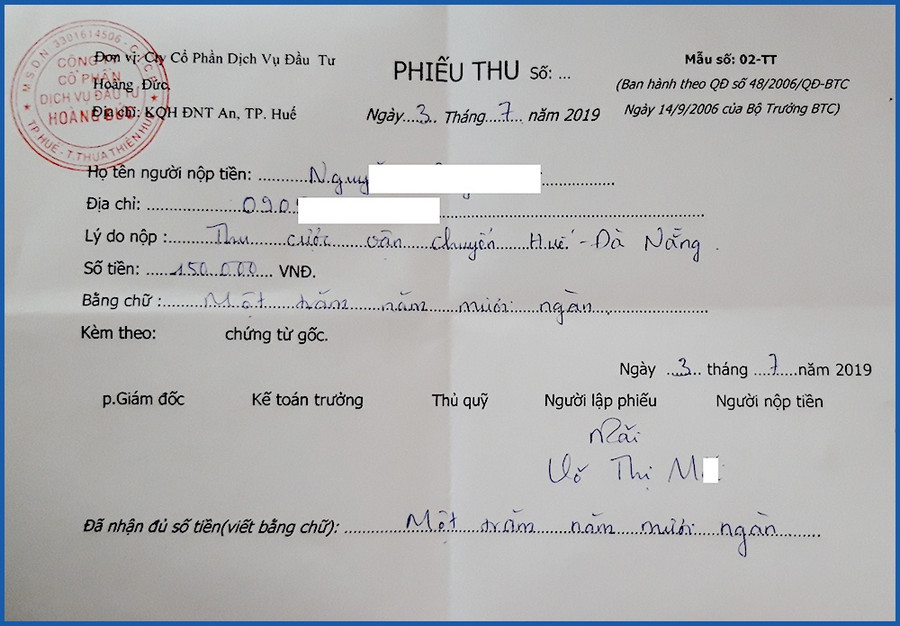 M.S.D.N: 3301614506 - C.T.C.P
CÔNG TY
CỔ PHẦN
DỊCH VỤ ĐẦU TƯ
HOÀNG ĐỨC
TP. HUẾ - T. THỪA THIÊN HUẾ
Đơn vị: Cty Cổ Phần Dịch Vụ Đầu Tư
Hoàng Đức
Địa chỉ: KQH ĐNT An, TP. Huế
PHIẾU THU Số: ...
Ngày....3.. Tháng....7... năm 2019
Mẫu số: 02-TT
(Ban hành theo QĐ số 48/2006/QĐ-BTC
Ngày 14/9/2006 của Bộ Trưởng BTC)
Họ tên người nộp tiền: Nguy
Địa chỉ: 090
Lý do nộp : Thu cước vận chuyển Huế - Đà Nẵng.
Số tiền: 150.000 VNĐ.
Bằng chữ : Một trăm năm mươi ngàn
Kèm theo: chứng từ gốc.
Ngày ...3... tháng ....7....năm 2019
p.Giám đốc Kế toán trưởng Thủ quỹ Người lập phiếu Người nộp tiền
Võ Thị M
Đã nhận đủ số tiền(viết bằng chữ): Một trăm năm mươi ngàn